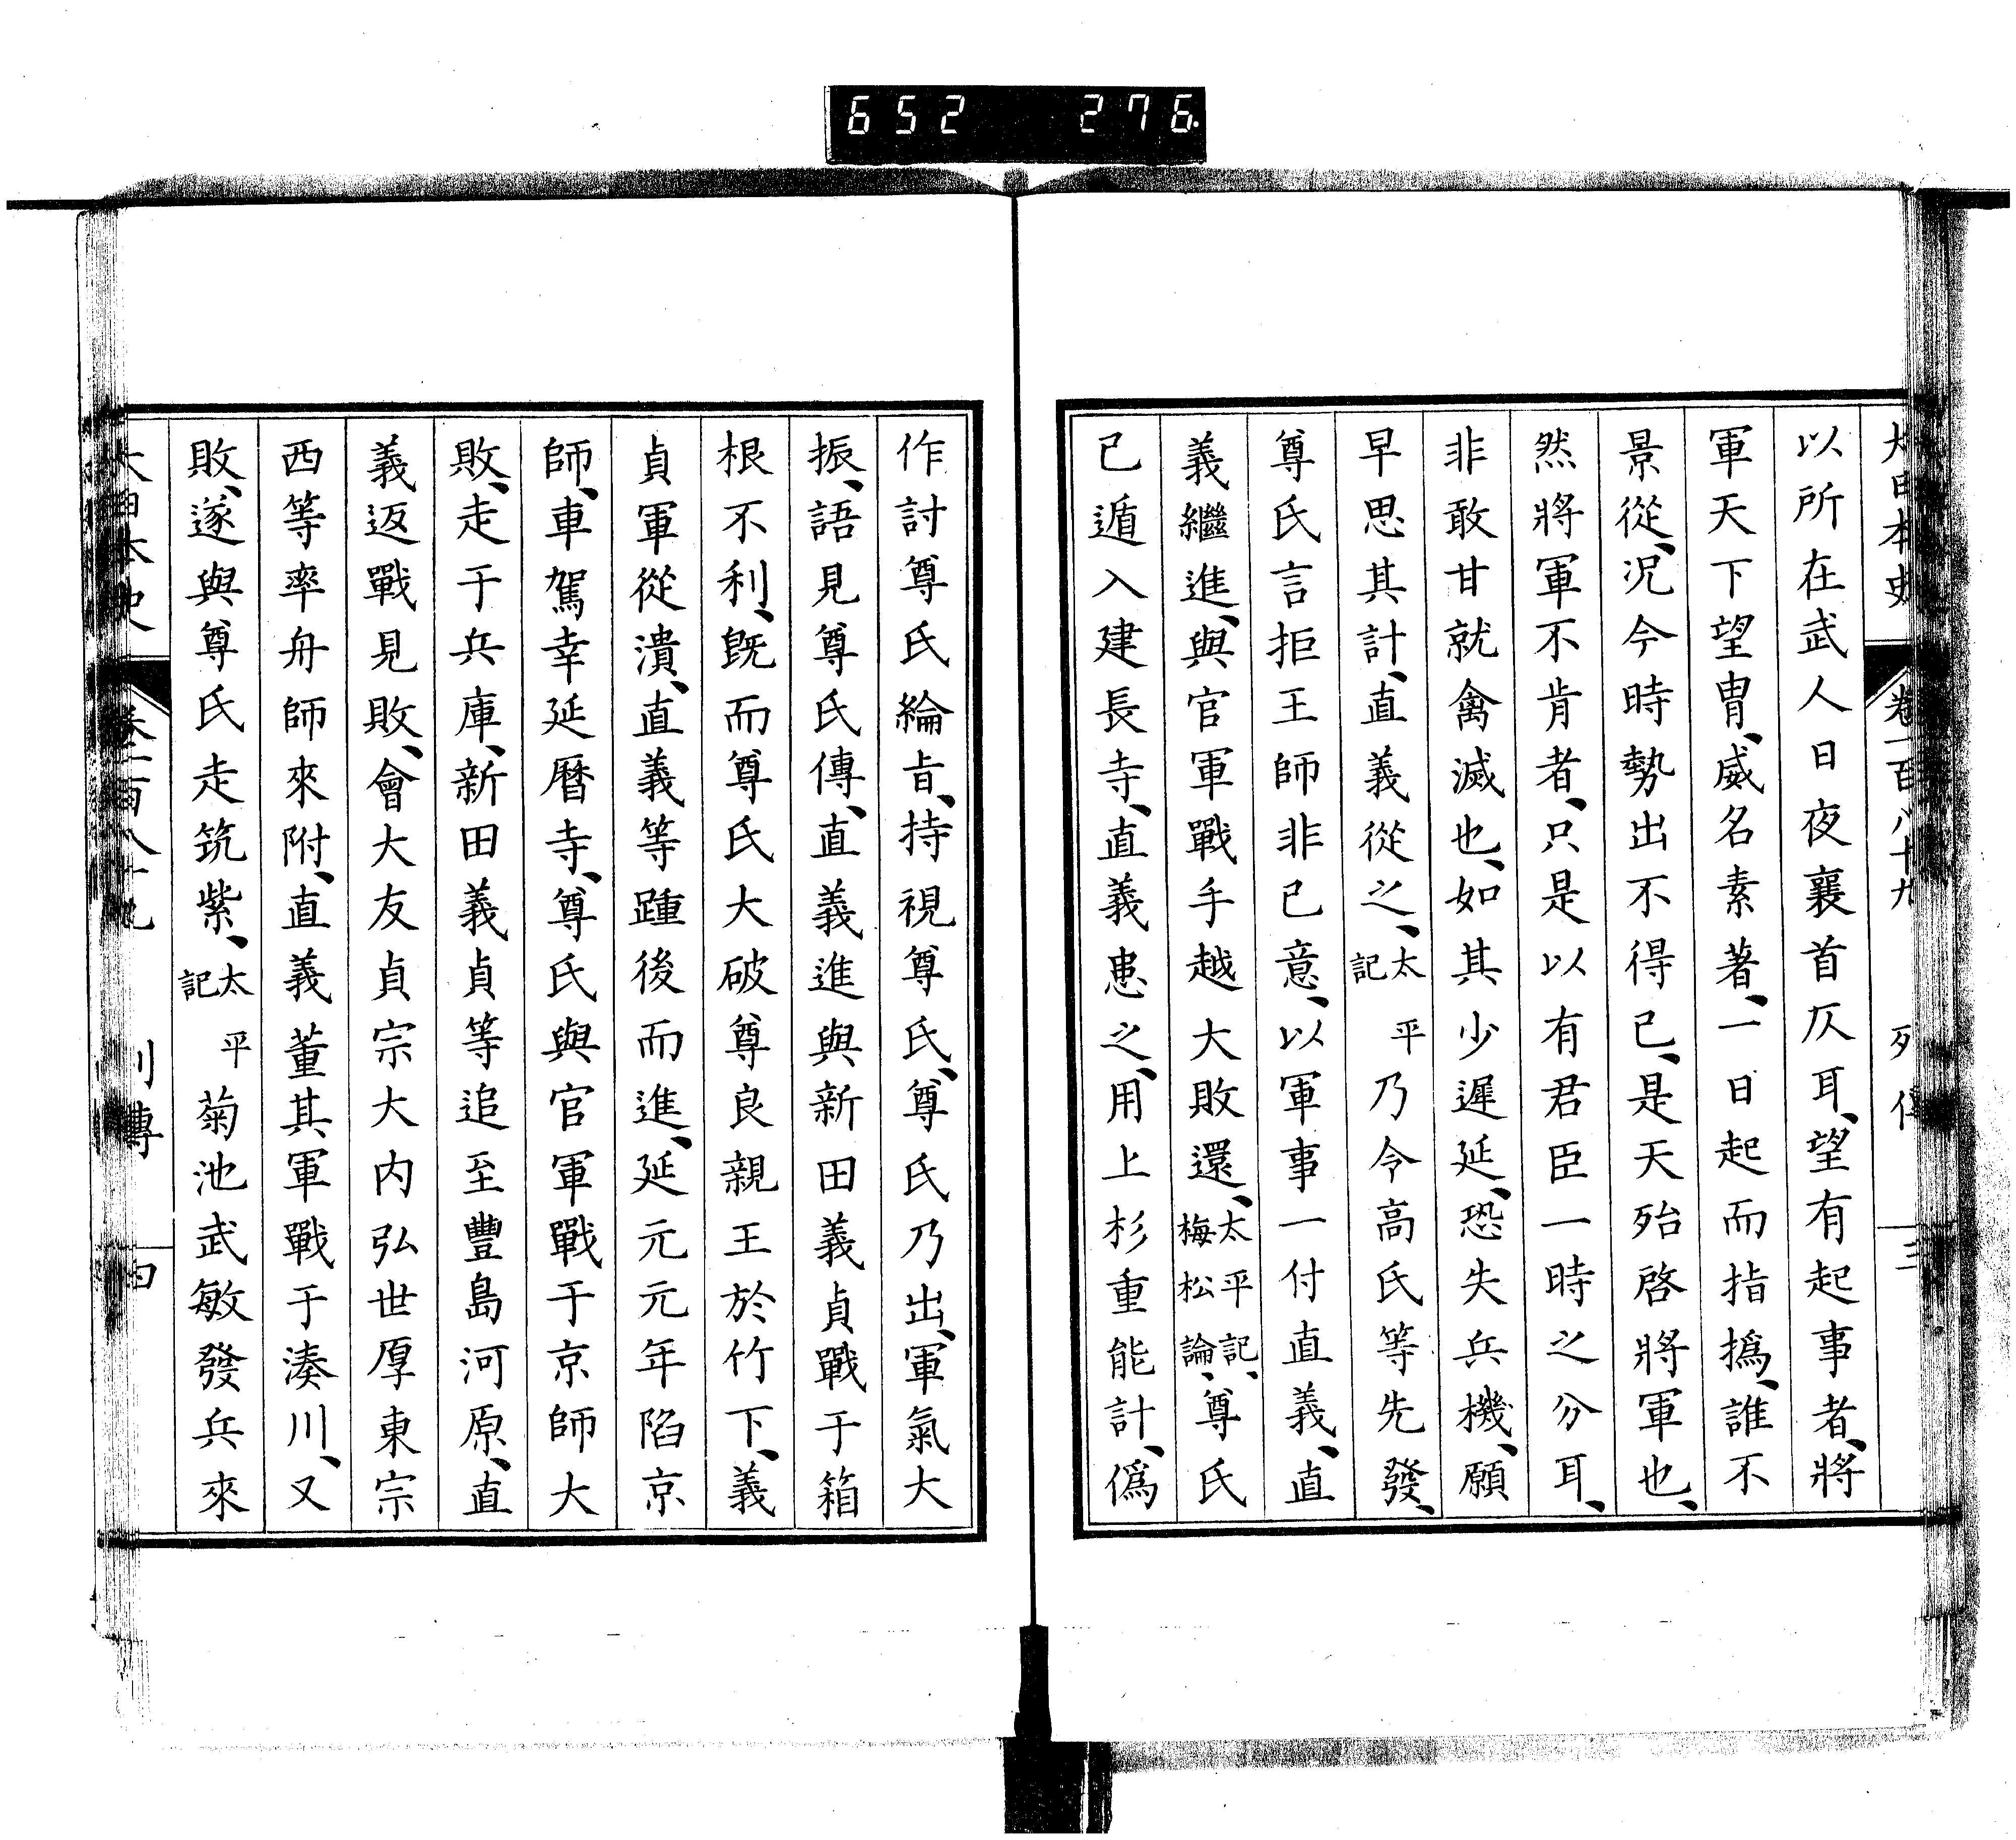 652 276
大日本史 卷一百八十九 列傳 三
以所在武人日夜襄首仄耳、望有起事者、將
軍天下望冑、威名素著、一日起而指撝、誰不
景從、况今時勢出不得已、是天殆啓將軍也、
然將軍不肯者、只是以有君臣一時之分耳、
非敢甘就禽滅也、如其少遲延、恐失兵機、願
早思其計、直義從之、太平記 乃令高氏等先發、
尊氏言拒王師非已意、以軍事一付直義、直
義繼進、與官軍戰手越大敗還、太平記、梅松論、尊氏
已遁入建長寺、直義患之、用上杉重能計、僞
作討尊氏綸旨、持視尊氏、尊氏乃出、軍氣大
振、語見尊氏傳、直義進與新田義貞戰于箱
根不利、旣而尊氏大破尊良親王於竹下、義
貞軍從潰、直義等踵後而進、延元元年陷京
師、車駕幸延曆寺、尊氏與官軍戰于京師大
敗、走于兵庫、新田義貞等追至豐島河原、直
義返戰見敗、會大友貞宗大内弘世厚東宗
西等率舟師來附、直義董其軍戰于湊川、又
敗、遂與尊氏走筑紫、太平記 菊池武敏發兵來
大日本史 卷一百八十九 列傳 四